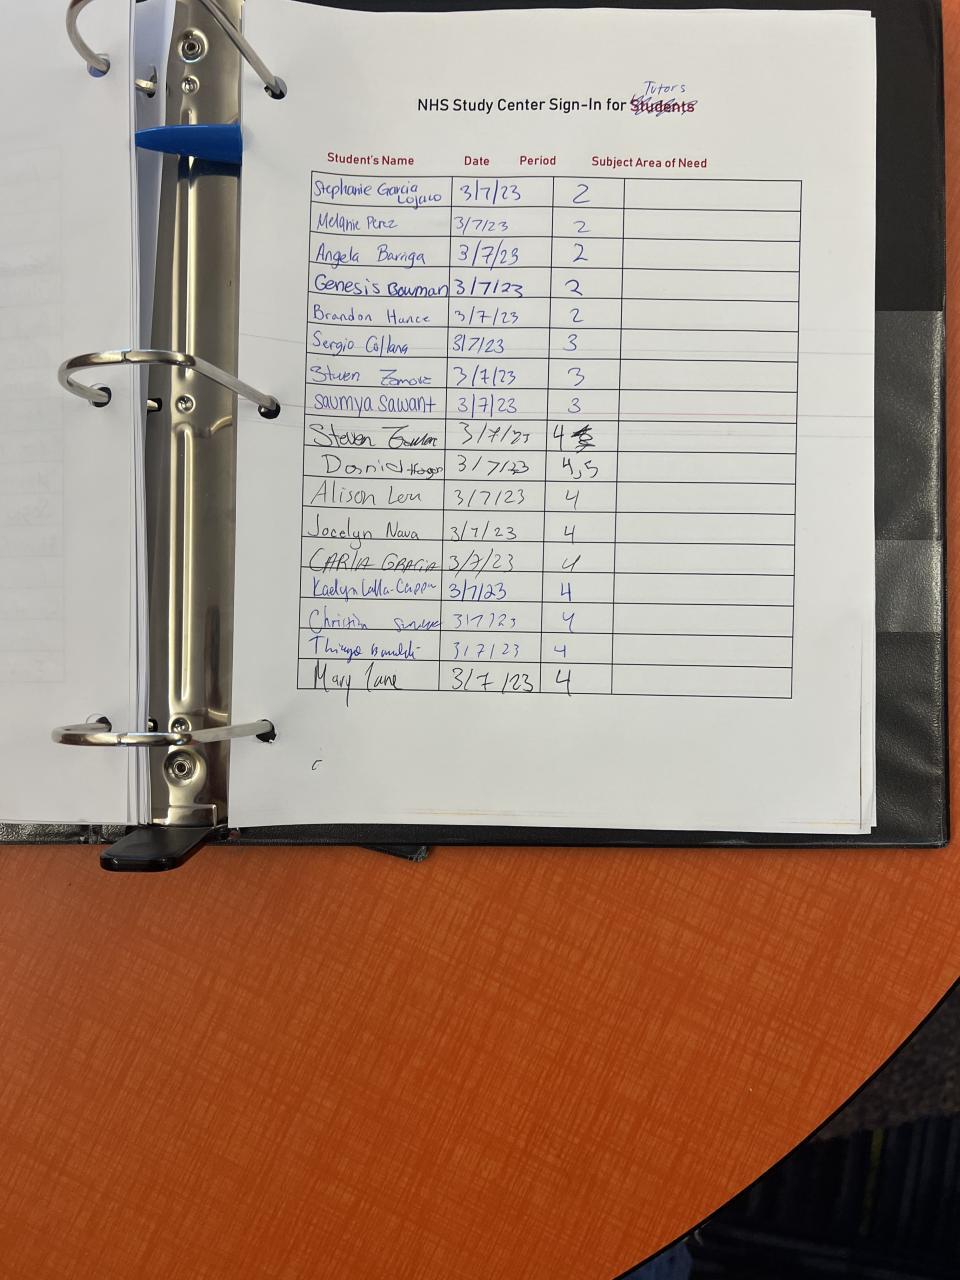 Tutors
NHS Study Center Sign-In for Students
Student's Name Date Period Subject Area of Need
Stephanie Garcia Lojano 3/7/23 2
Melanie Perez 3/7/23 2
Angela Barriga 3/7/23 2
Genesis Bowman 3/7/23 2
Brandon Hance 3/7/23 2
Sergio Collana 3/7/23 3
Steven 3/7/23 3
Saumya Sawant 3/7/23 3
Steven 3/7/23 4
3/7/23 4,5
Alison 3/7/23 4
Jocelyn Nava 3/7/23 4
CARLA GRACIA 3/7/23 4
Kaelyn 3/7/23 4
3/7/23 4
Thiago 3/7/23 4
Mary Jane 3/7/23 4